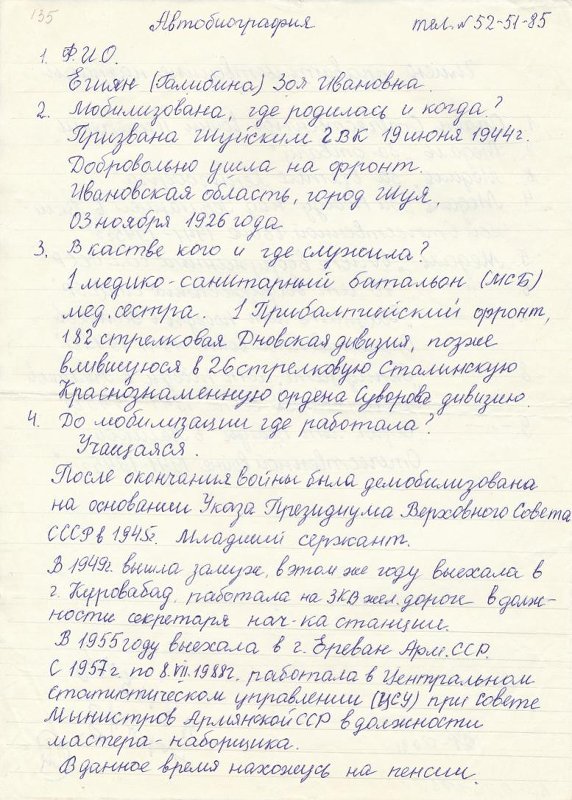 135
Автобиография тел. № 52-51-85
1. Ф.И.О.
Егиян (Галибина) Зоя Ивановна.
2. Мобилизована, где родилась и когда?
Призвана Шуйским ГВК 19 июня 1944г.
Добровольно ушла на фронт.
Ивановская область, город Шуя,
03 ноября 1926 года.
3. В кастве кого и где служила?
1 медико-санитарный батальон (МСБ)
мед.сестра. 1 Прибалтийский фронт,
182 стрелковая Дновская дивизия, позже
влившуюся в 26 стрелковую Сталинскую
Краснознаменную ордена Суворова дивизию.
4. До мобилизации где работала?
Учащаяся.
После окончания войны была демобилизована
на основании Указа Президиума Верховного Совета
СССР в 1945г. Младший сержант.
В 1949г. вышла замуж, в этом же году выехала в
г. Кировабад, работала на ЗКВ жел. дороге в долж-
ности секретаря нач-ка станции.
В 1955 году выехала в г. Ереван Арм.ССР.
С 1957г. по 8.VII.1988г. работала в Центральном
статистическом управлении (ЦСУ) при Совете
Министров Армянской ССР в должности
мастера-наборщика.
В данное время нахожусь на пенсии.